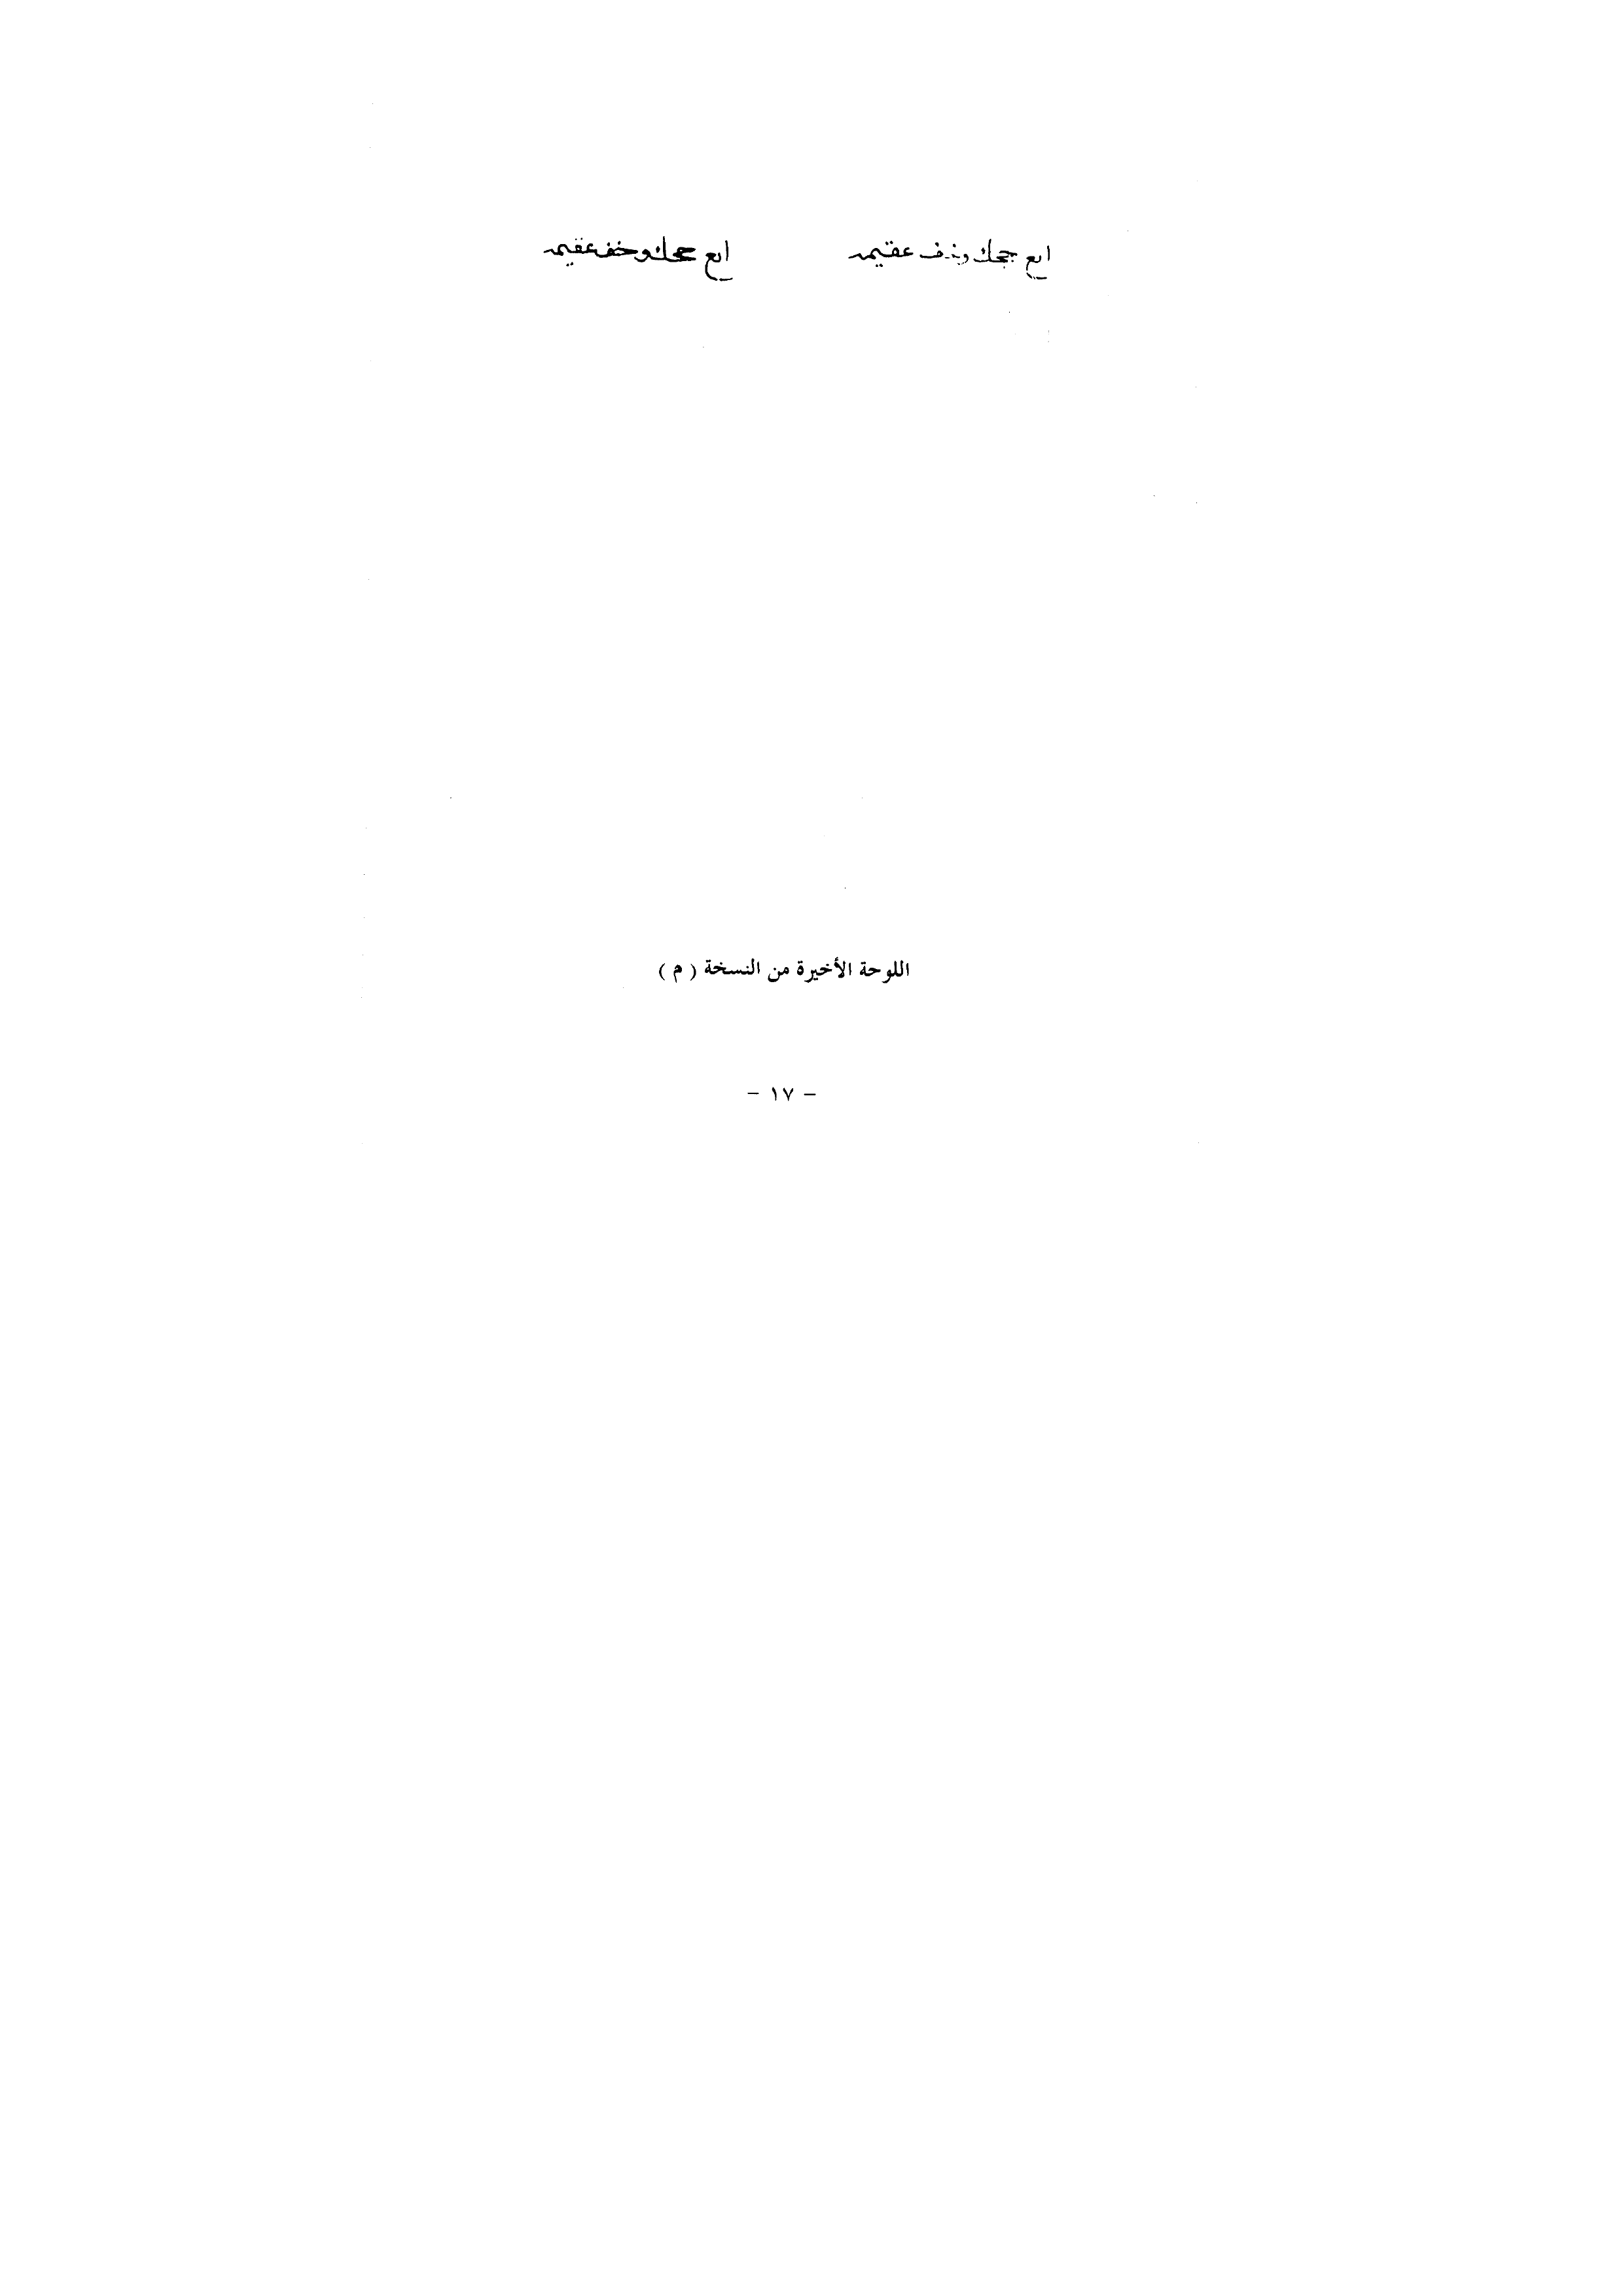 ابع حجك وخف عقيمه
ابع حجك وخف عقيمه
اللوحة الأخيرة من النسخة ( م )
– ١٧ –